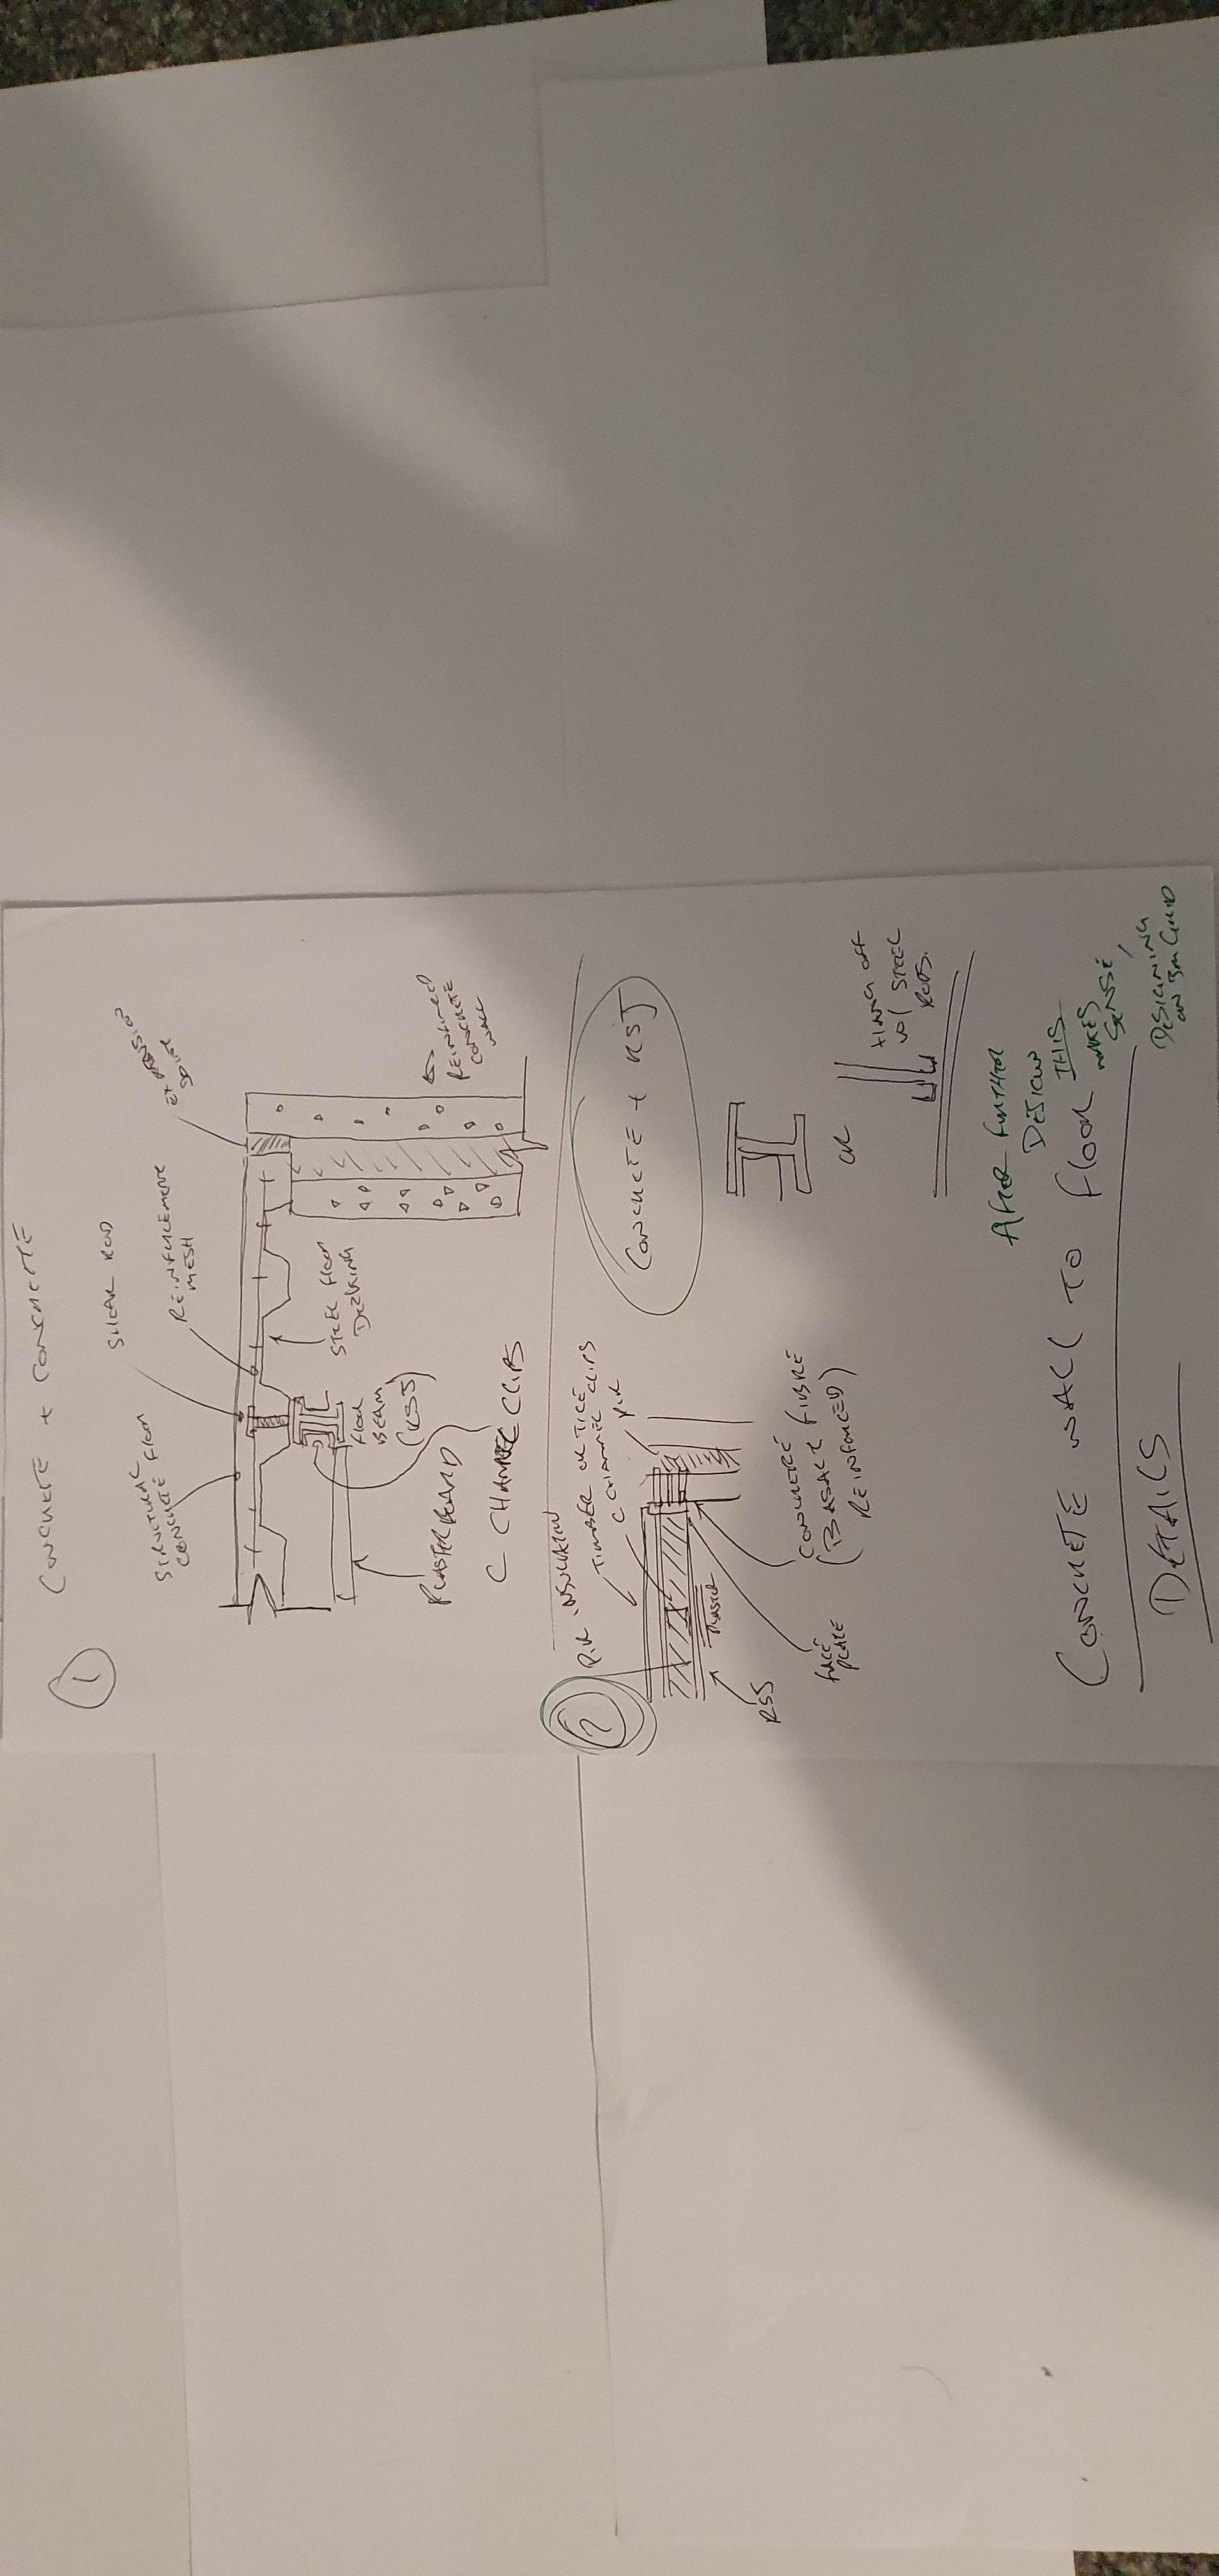 ①
CONCRETE + CONCRETE
SHEAR ROD
STRUCTURAL
CONCRETE FLOOR
REINFORCEMENT
MESH
EXPANSION
STEEL FLOOR
DECKING
FLOOR
BEAM
(RSJ)
REINFORCED
CONCRETE
WALL
PLASTERBOARD
C CHANNEL CLIP
②
P.I.R. INSULATION
TIMBER OR TILE
C CHANNEL CLIPS
P.I.R
CONCRETE + RSJ
RSJ
FACE
PLATE
CONCRETE FIBRE
(BASALT FIBRE
REINFORCED)
OR
TYING OFF
W/ STEEL
RODS.
AFTER FURTHER
DESIGN
THIS
MAKES
SENSE,
DESIGNING
ON 3M GRID
CONCRETE WALL TO FLOOR
DETAILS